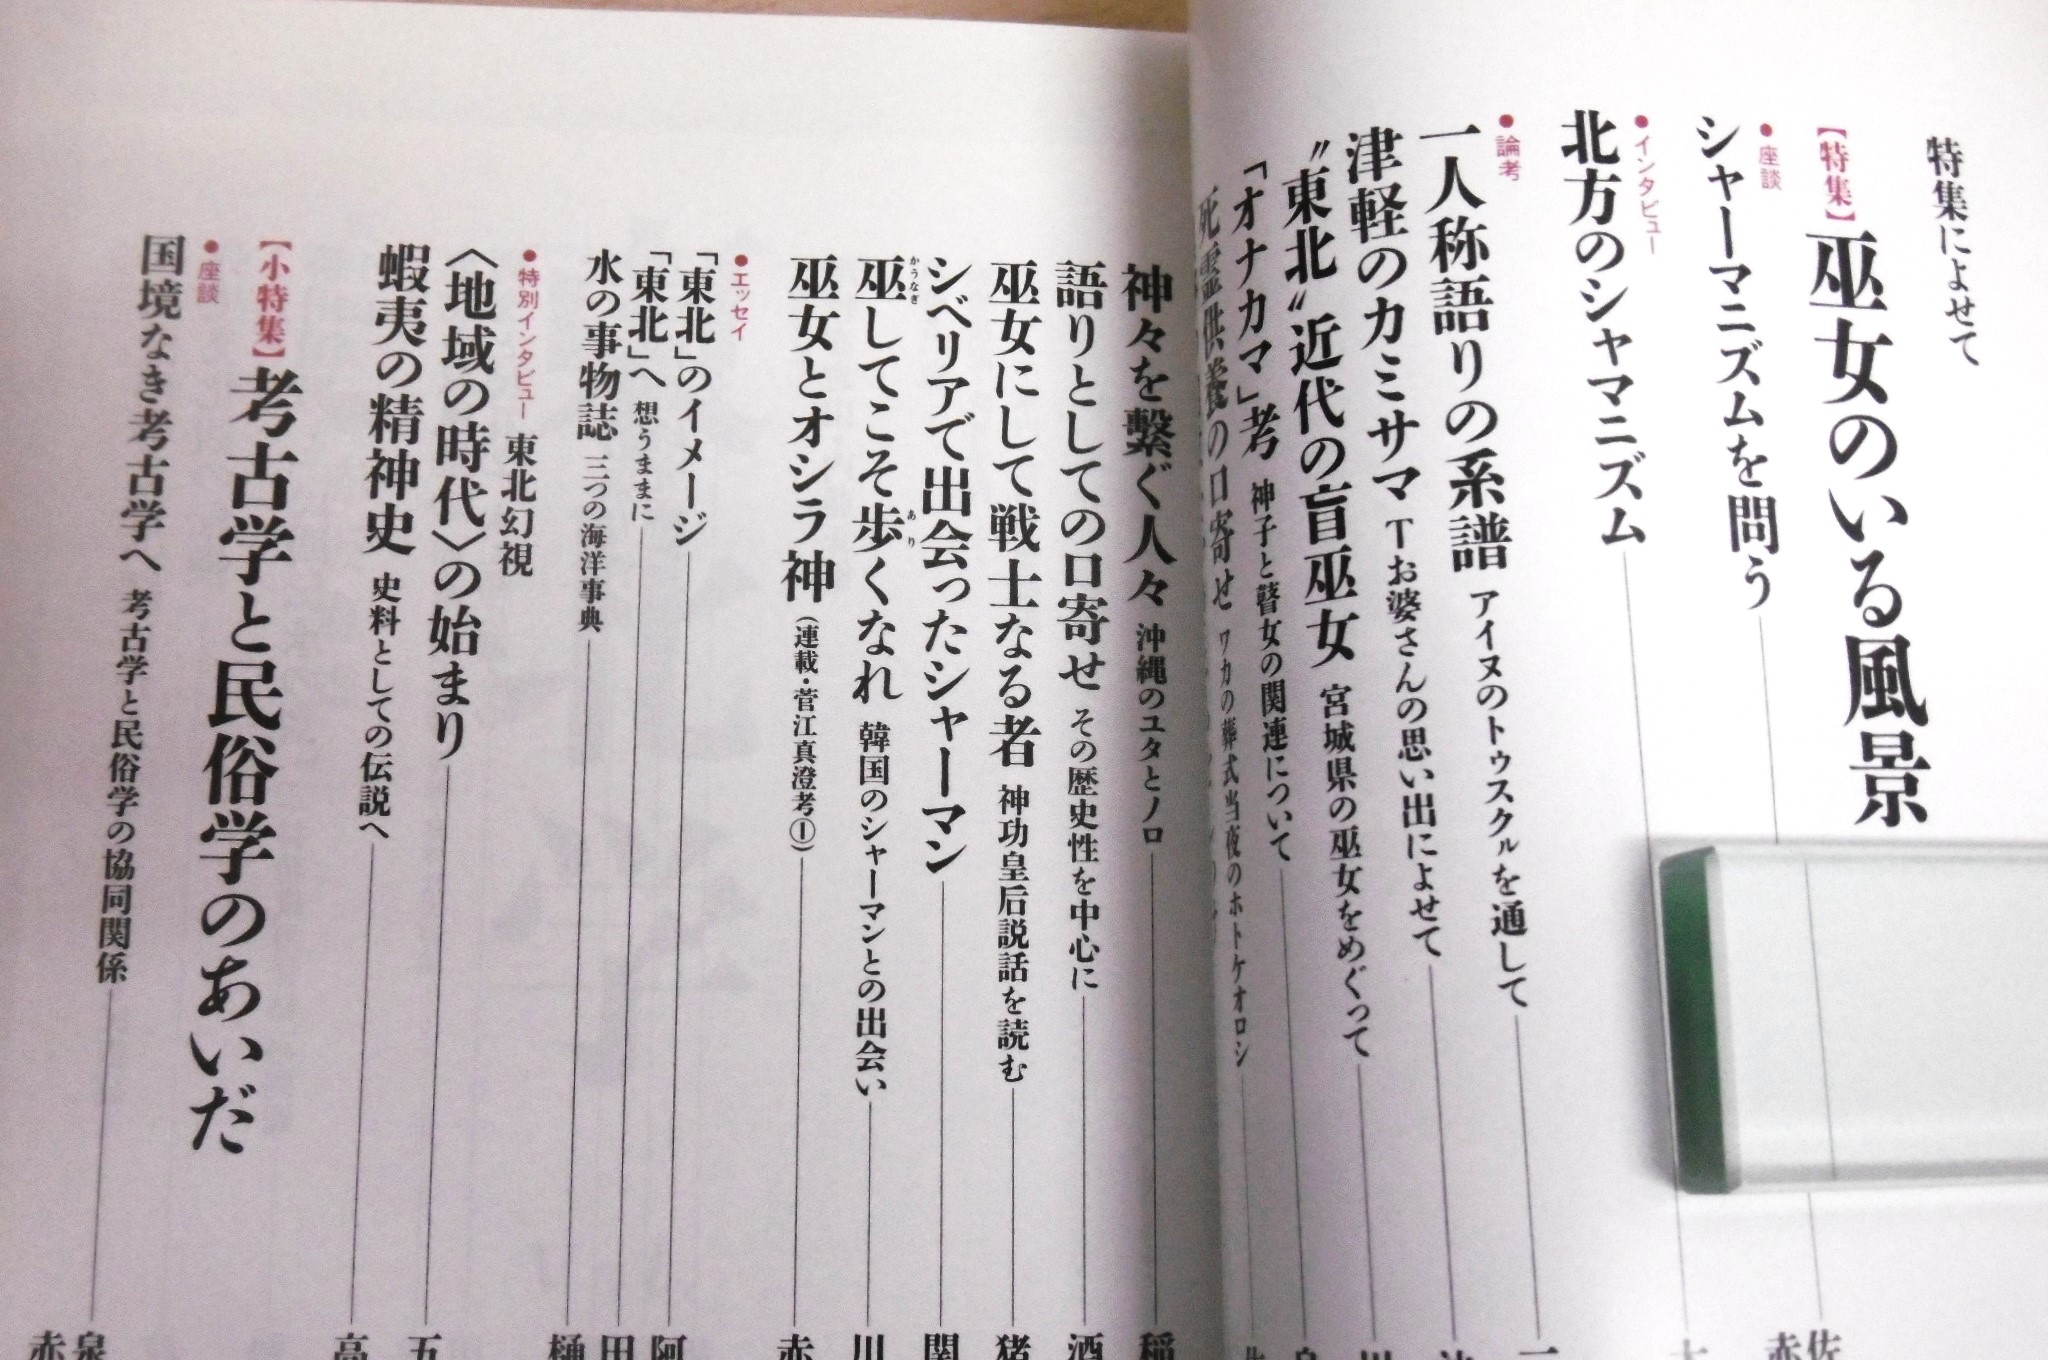 特集によせて
【特集】巫女のいる風景
●座談
シャーマニズムを問う
●インタビュー
北方のシャマニズム
●論考
一人称語りの系譜 アイヌのトゥスクルを通して
津軽のカミサマ Tお婆さんの思い出によせて
〝東北〟近代の盲巫女 宮城県の巫女をめぐって
「オナカマ」考 神子と瞽女の関連について
死霊供養の口寄せ ワカの葬式当夜のホトケオロシ
神々を繋ぐ人々 沖縄のユタとノロ
語りとしての口寄せ その歴史性を中心に
巫女にして戦士なる者 神功皇后説話を読む
シベリアで出会ったシャーマン
巫してこそ歩くなれ 韓国のシャーマンとの出会い
かうなぎ
あり
巫女とオシラ神（連載・菅江真澄考①）
●エッセイ
「東北」のイメージ
「東北」へ 想うままに
水の事物誌 三つの海洋事典
●特別インタビュー 東北幻視
〈地域の時代〉の始まり
蝦夷の精神史 史料としての伝説へ
【小特集】考古学と民俗学のあいだ
●座談
国境なき考古学へ 考古学と民俗学の協同関係
佐
赤
一
川
稲
酒
猪
関
川
赤
阿
田
樋
五
高
泉
赤